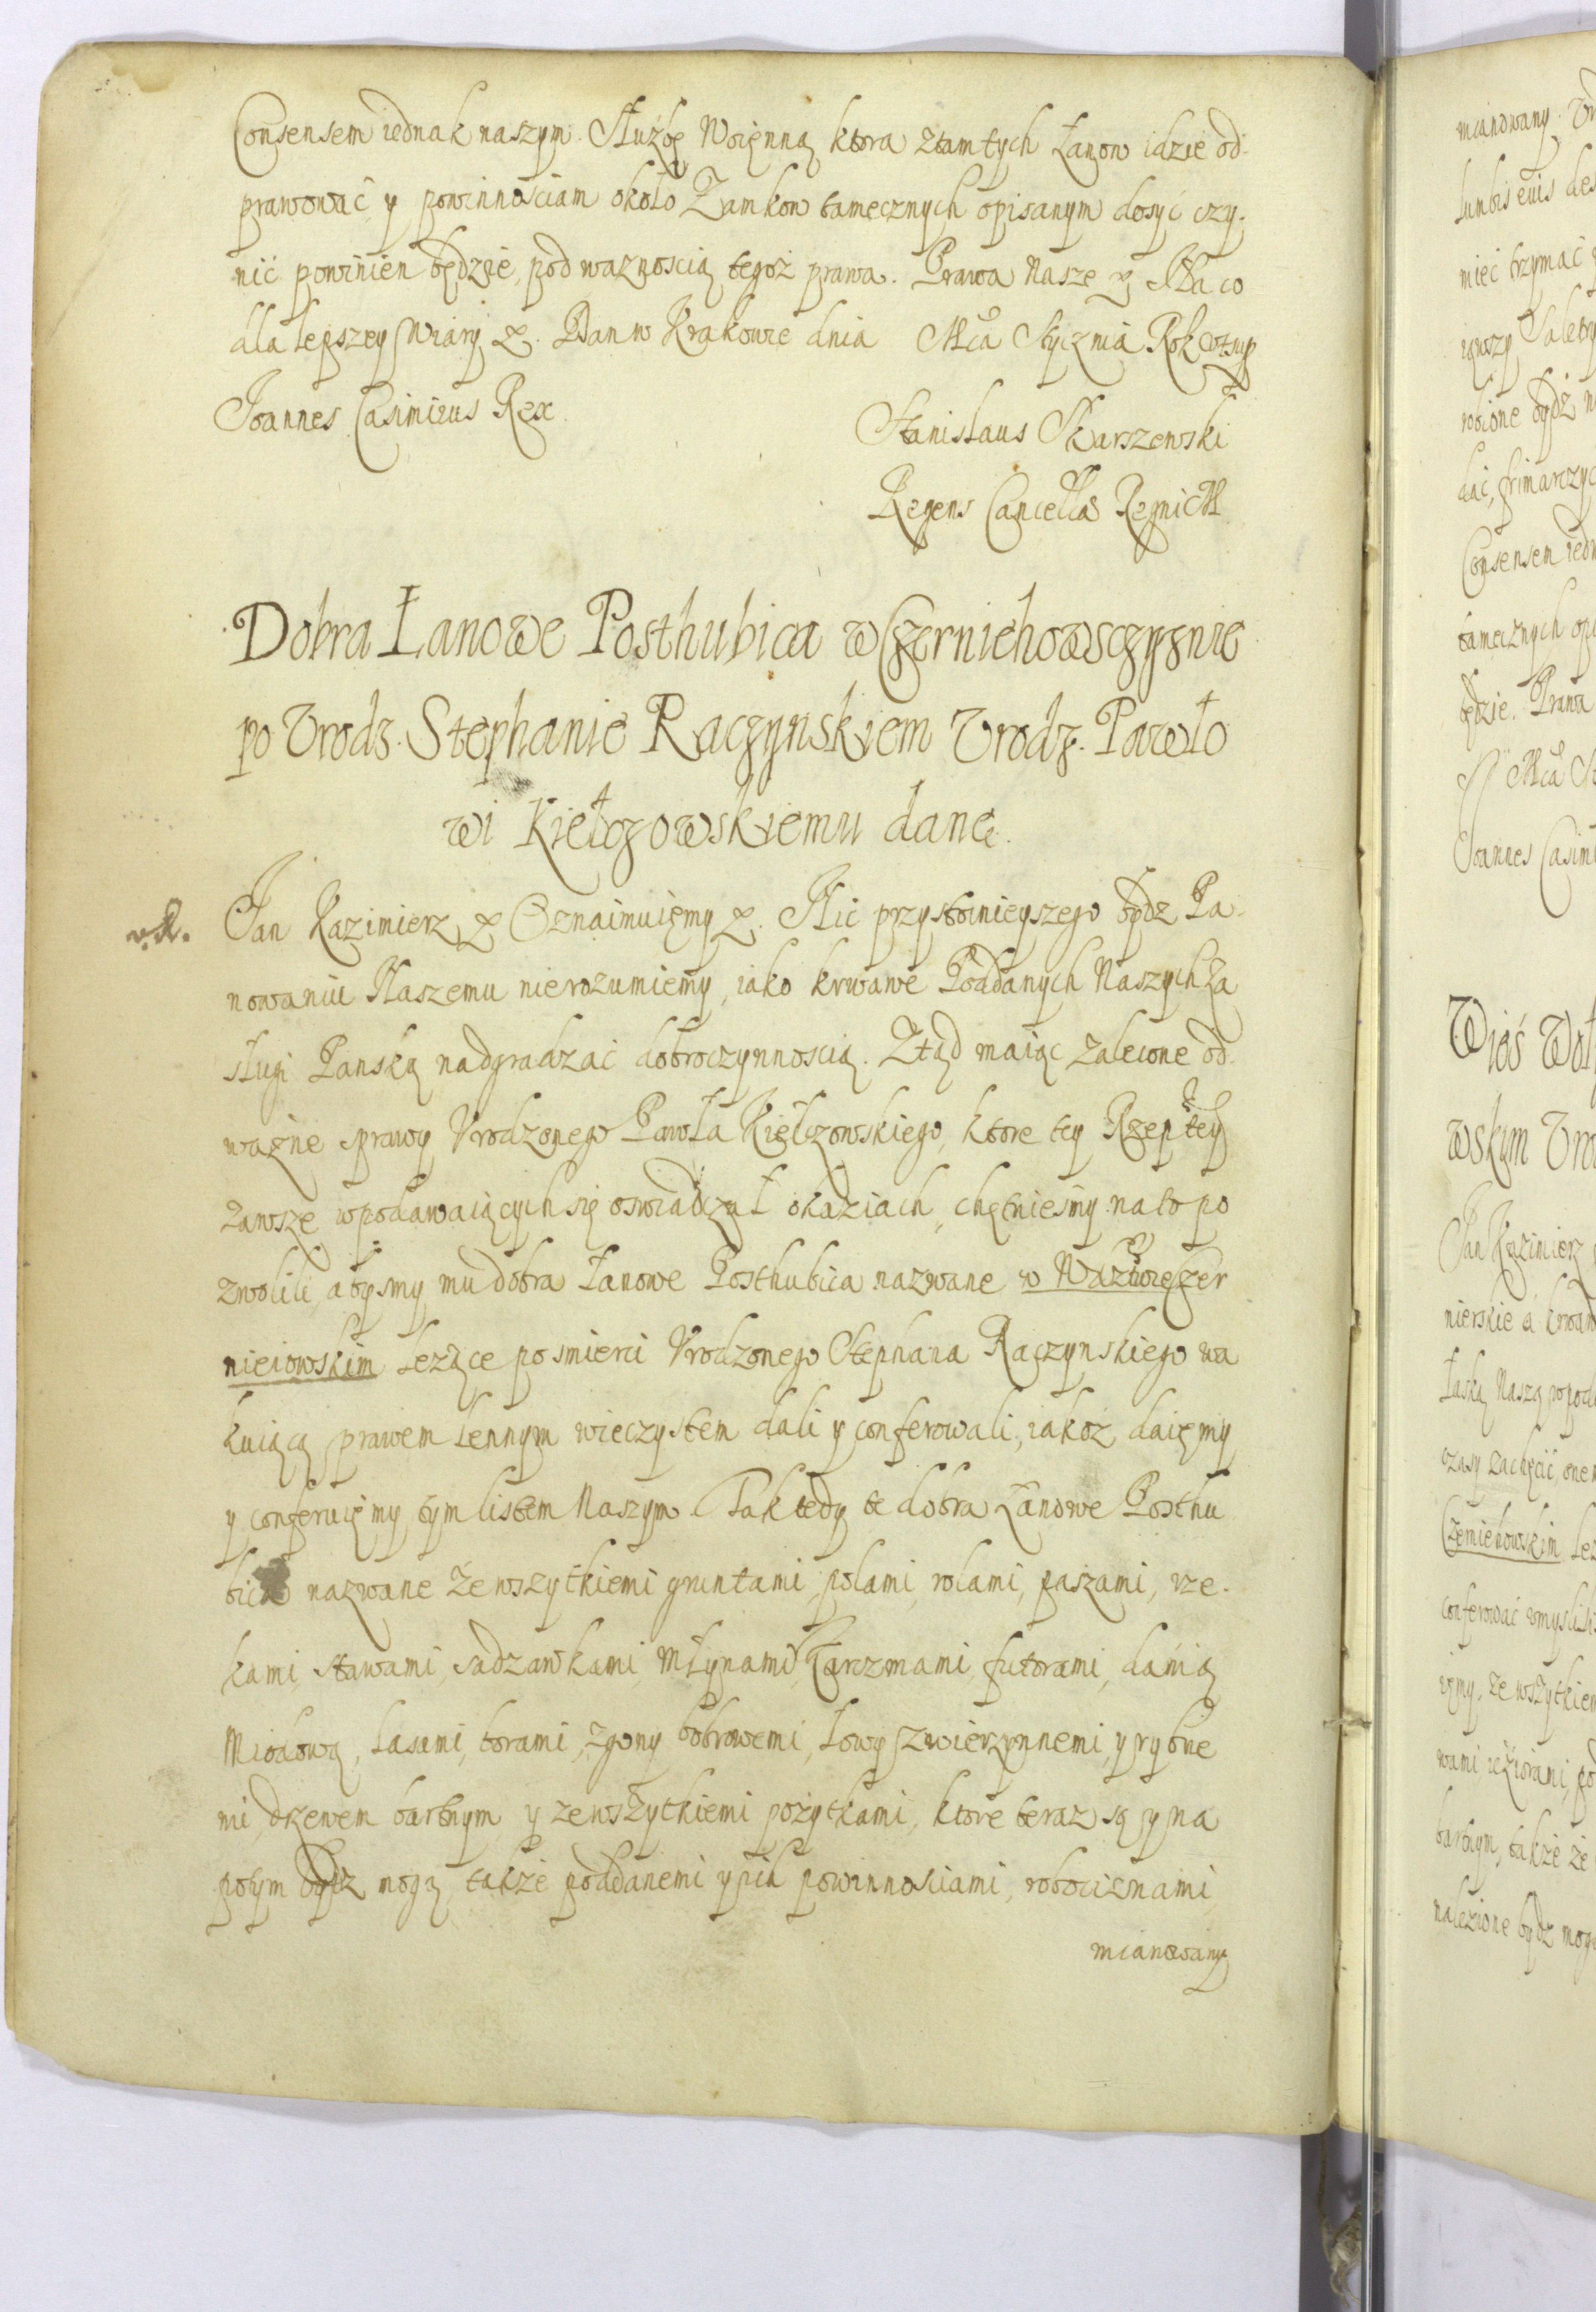 Consensem iednak naszym. Służbę Woienną ktora ztamtych Łanow idzie od-
prawować y powinnosciam około Zamkow tamecznych opisanym dosyć czy-
nić powinien będzie, pod waznoscią tegoż prawa. Prawa Nasze &. Na co
dla lepszey wiary &. Dan w Krakowie dnia Mca Stycznia Rok
Joannes Casimirus Rex.
Stanislaus Skarszewski
Regens Cancellae Regni M
Dobra Łanowe Posthubica w Czerniehowsczyznie
po Urodz. Stephanie Raczynskiem Urodz. Pawło
wi Kiełczowskiemu dane.
Jan Kazimierz & Oznaimuięmy &. Nic przystoinieyszego bydz Pa-
nowaniu Naszemu nierozumiemy, iako krwawe Poddanych Naszych Za
sługi Panską nadgradzać dobroczynnoscią. Ztąd maiąc zalecone od-
ważne sprawy Urodzonego Pawła Kiełczowskiego, ktore tey Rzeptey
zawsze wpodawaiących się oswiadczał okaziach, chętniesmy na to po
zwolili, abysmy mu dobra Łanowe Posthubica nazwane w Czer
nieiowskim leżące po smierci Urodzonego Stephana Raczynskiego wa
kuiącą prawem lennym wieczystem dali y conferowali, iakoż daięmy
y conferuięmy tym listem Naszym. Tak tedy te dobra Łanowe Posthu
bica nazwane zewszytkiemi gruntami, polami, rolami, paszami, rze-
kami, stawami, sadzawkami, Młynami, Karczmami, futorami, danią
Miodową, lasami, borami, zgony bobrowemi, łowy zwierzynnemi, y rybne
mi, drzewem bartnym y zewszytkiemi pożytkami, ktore teraz są y na
potym bydz mogą, także poddanemi y ich powinnosciami, robociznami,
mianowany
mianowany
mieć trzymać
robione bydź
Consensem
tamecznych
będzie. Prawa
Joannes Casimi
Wieś
wskim Uro
Jan Kazimierz
nierskie a
Łaską Naszą
Czerniehowskim
conferować umysli
zewszytkiem
bartnym, także że
należione bydz mogą